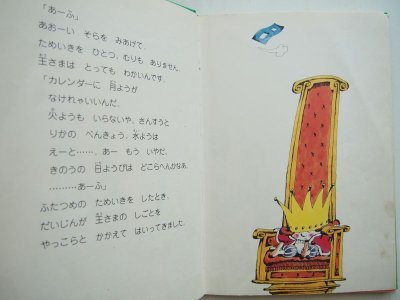 「あーぷ」
あおーい そらを みあげて、
ためいきを ひとつ。むりも ありません。
王さまは とっても わかいんです。
「カレンダーに 月ようが
なけれゃいいんだ。
火ようも いらないや。さんすうと
りかの べんきょう。水ようは
えーと……、あー もう いやだ。
きのうの 日ようびは どこらへんかなあ。
………あーふ」
ふたつめの ためいきを したとき、
だいじんが 王さまの しごとを
やっこらと かかえて はいってきました。